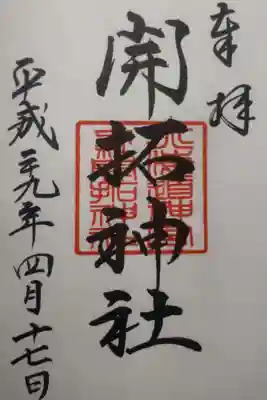 奉拝
開拓神社
平成二十九年四月十七日